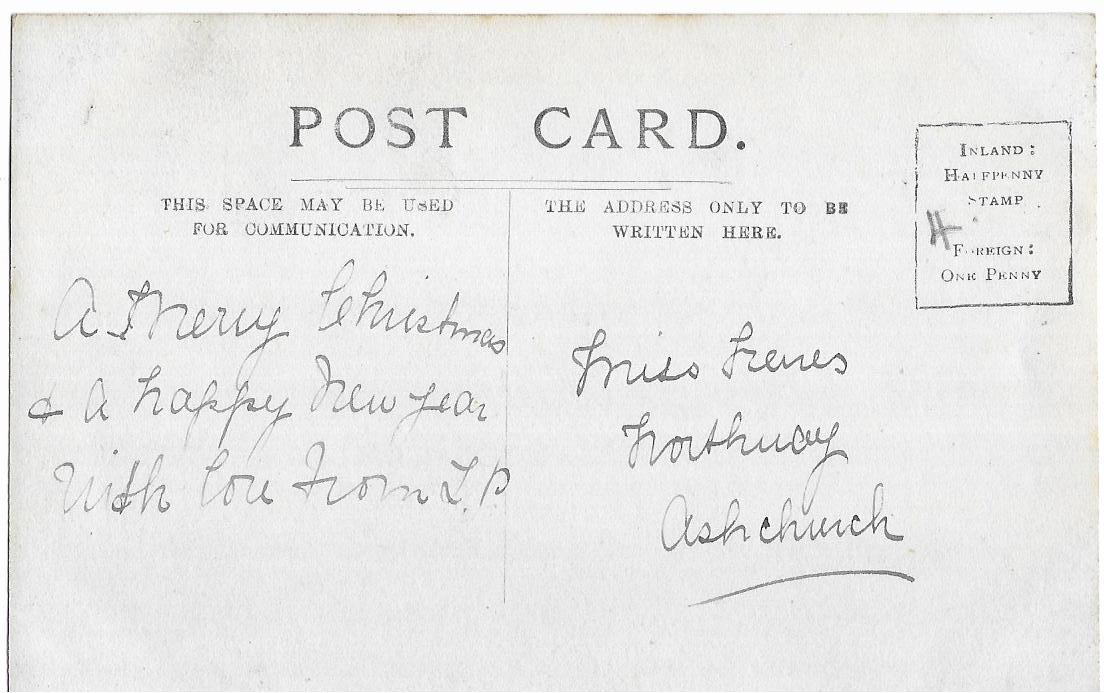 POST CARD.
THIS SPACE MAY BE USED
FOR COMMUNICATION.
THE ADDRESS ONLY TO BE
WRITTEN HERE.
INLAND:
HALFPENNY
STAMP.
FOREIGN:
ONE PENNY
A Merry Christmas
& A happy New year
With love From L.P
Miss
Northway
Ashchurch